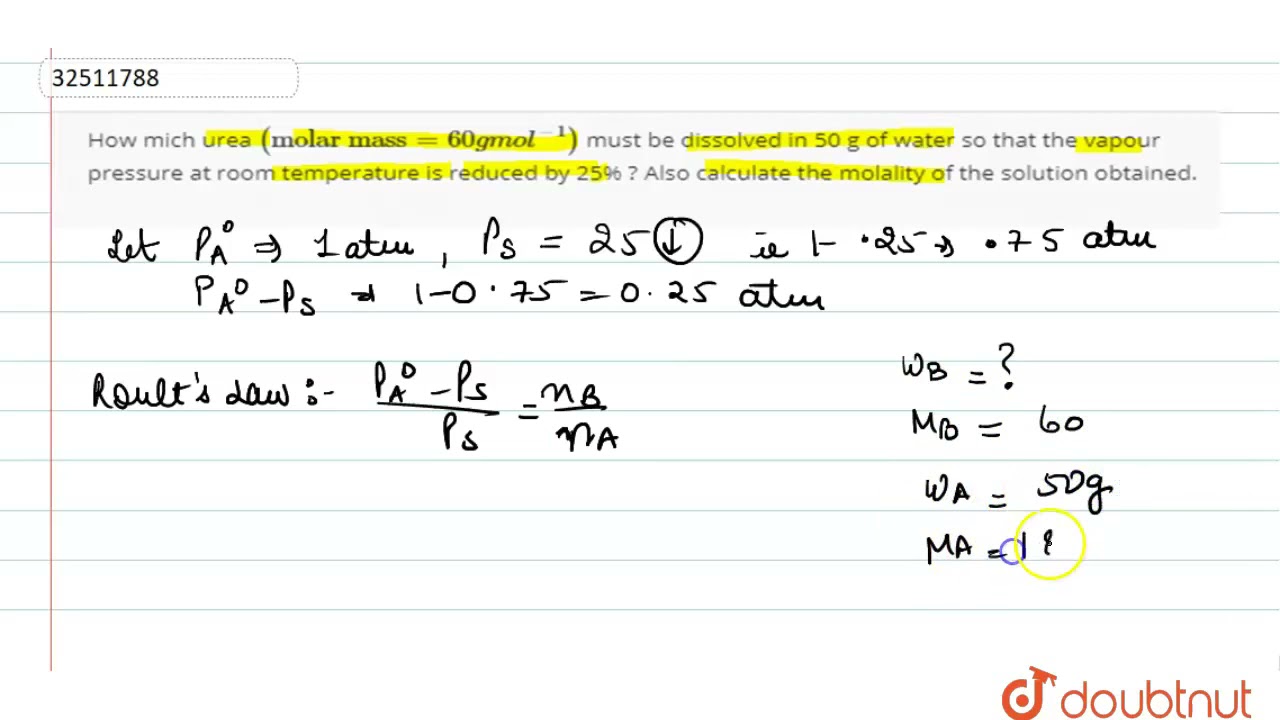 32511788
How mich urea (molar mass = 60gmol⁻¹) must be dissolved in 50 g of water so that the vapour
pressure at room temperature is reduced by 25% ? Also calculate the molality of the solution obtained.
Let P_A⁰ ⇒ 1 atm , P_S = 25 ↓ ie 1- .25 → .75 atm
P_A⁰ - P_S → 1-0.75 = 0.25 atm
Roult's Law :- (P_A⁰ - P_S)/P_S = n_B/n_A
W_B = ?
M_B = 60
W_A = 50g
M_A = 18
doubtnut